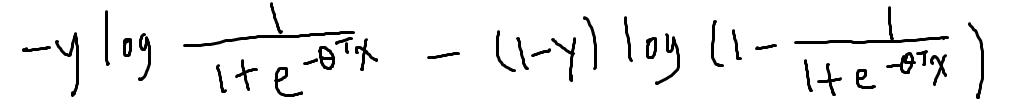 -y log \frac{1}{1+e^{-θ^T x}} - (1-y) log (1 - \frac{1}{1+e^{-θ^T x}})